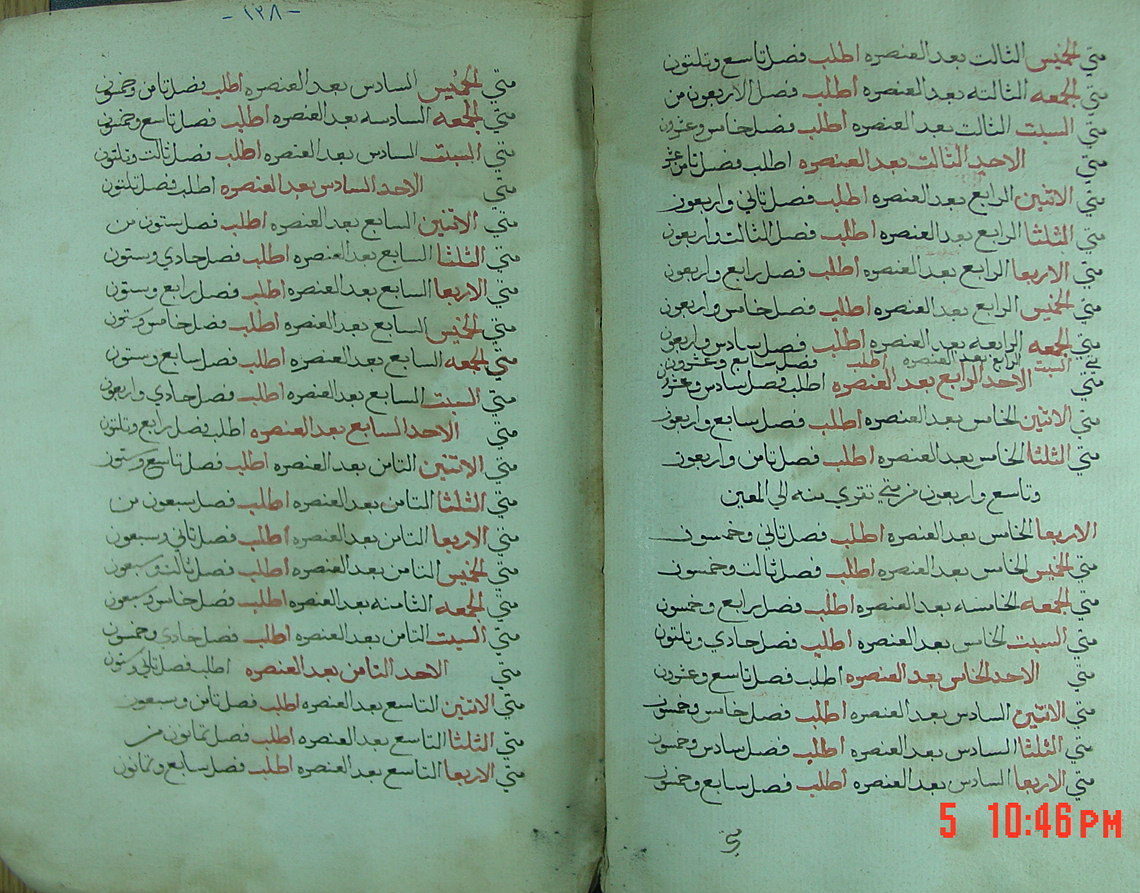 متي الخميس الثالت بعد العنصره اطلب فصل تاسع وتلتون
متي الجمعه الثالثه بعد العنصره اطلب فصل الاربعون من
متي السبت الثالت بعد العنصره اطلب فصل خامس وعشرون
متي الاحد الثالت بعد العنصره اطلب فصل تامن عشر
متي الاثنين الرابع بعد العنصره اطلب فصل تاني واربعون
متي الثلثا الرابع بعد العنصره اطلب فصل الثالت واربعون
متي الاربعا الرابع بعد العنصره اطلب فصل رابع واربعون
متي الخميس الرابع بعد العنصره اطلب فصل خامس واربعون
متي الجمعه الرابعه بعد العنصره اطلب فصل سادس واربعون
متي السبت الرابع بعد العنصره اطلب فصل سابع وعشرون
متي الاحد الرابع بعد العنصره اطلب فصل سادس وعشرون
متي الاتنين الخامس بعد العنصره اطلب فصل سابع واربعون
متي الثلثا الخامس بعد العنصره اطلب فصل تامن واربعون
وتاسع واربعون من متي تقري منه الي المعين
الاربعا الخامس بعد العنصره اطلب فصل تاني وخمسون
متي الخميس الخامس بعد العنصره اطلب فصل تالت وخمسون
متي الجمعه الخامسه بعد العنصره اطلب فصل رابع وخمسون
متي السبت الخامس بعد العنصره اطلب فصل حادي وتلتون
متي الاحد الخامس بعد العنصره اطلب فصل تاسع وعشرون
متي الاتنين السادس بعد العنصره اطلب فصل خامس وخمسون
متي الثلثا السادس بعد العنصره اطلب فصل سادس وخمسون
متي الاربعا السادس بعد العنصره اطلب فصل سابع وخمسون
متي
-١٣٨-
متي الخميس السادس بعد العنصره اطلب فصل تامن وخمسون
متي الجمعه السادسه بعد العنصره اطلب فصل تاسع وخمسون
متي السبت السادس بعد العنصره اطلب فصل تالت وتلتون
متي الاحد السادس بعد العنصره اطلب فصل تلتون
متي الاتنين السابع بعد العنصره اطلب فصل ستون من
متي الثلثا السابع بعد العنصره اطلب فصل حادي وستون
متي الاربعا السابع بعد العنصره اطلب فصل رابع وستون
متي الخميس السابع بعد العنصره اطلب فصل خامس وستون
متي الجمعه السابع بعد العنصره اطلب فصل سابع وستون
متي السبت السابع بعد العنصره اطلب فصل حادي واربعون
متي الاحد السابع بعد العنصره اطلب فصل رابع وتلتون
متي الاتنين التامن بعد العنصره اطلب فصل تاسع وستون
متي الثلثا التامن بعد العنصره اطلب فصل سبعون من
متي الاربعا التامن بعد العنصره اطلب فصل تاني وسبعون
متي الخميس التامن بعد العنصره اطلب فصل تالت وسبعون
متي الجمعه الثامنه بعد العنصره اطلب فصل خامس وسبعون
متي السبت التامن بعد العنصره اطلب فصل حادي وخمسون
متي الاحد التامن بعد العنصره اطلب فصل تاني وستون
متي الاتنين التاسع بعد العنصره اطلب فصل تامن وسبعون
متي الثلثا التاسع بعد العنصره اطلب فصل تمانون من
متي الاربعا التاسع بعد العنصره اطلب فصل سابع وتمانون
5 10:46 PM